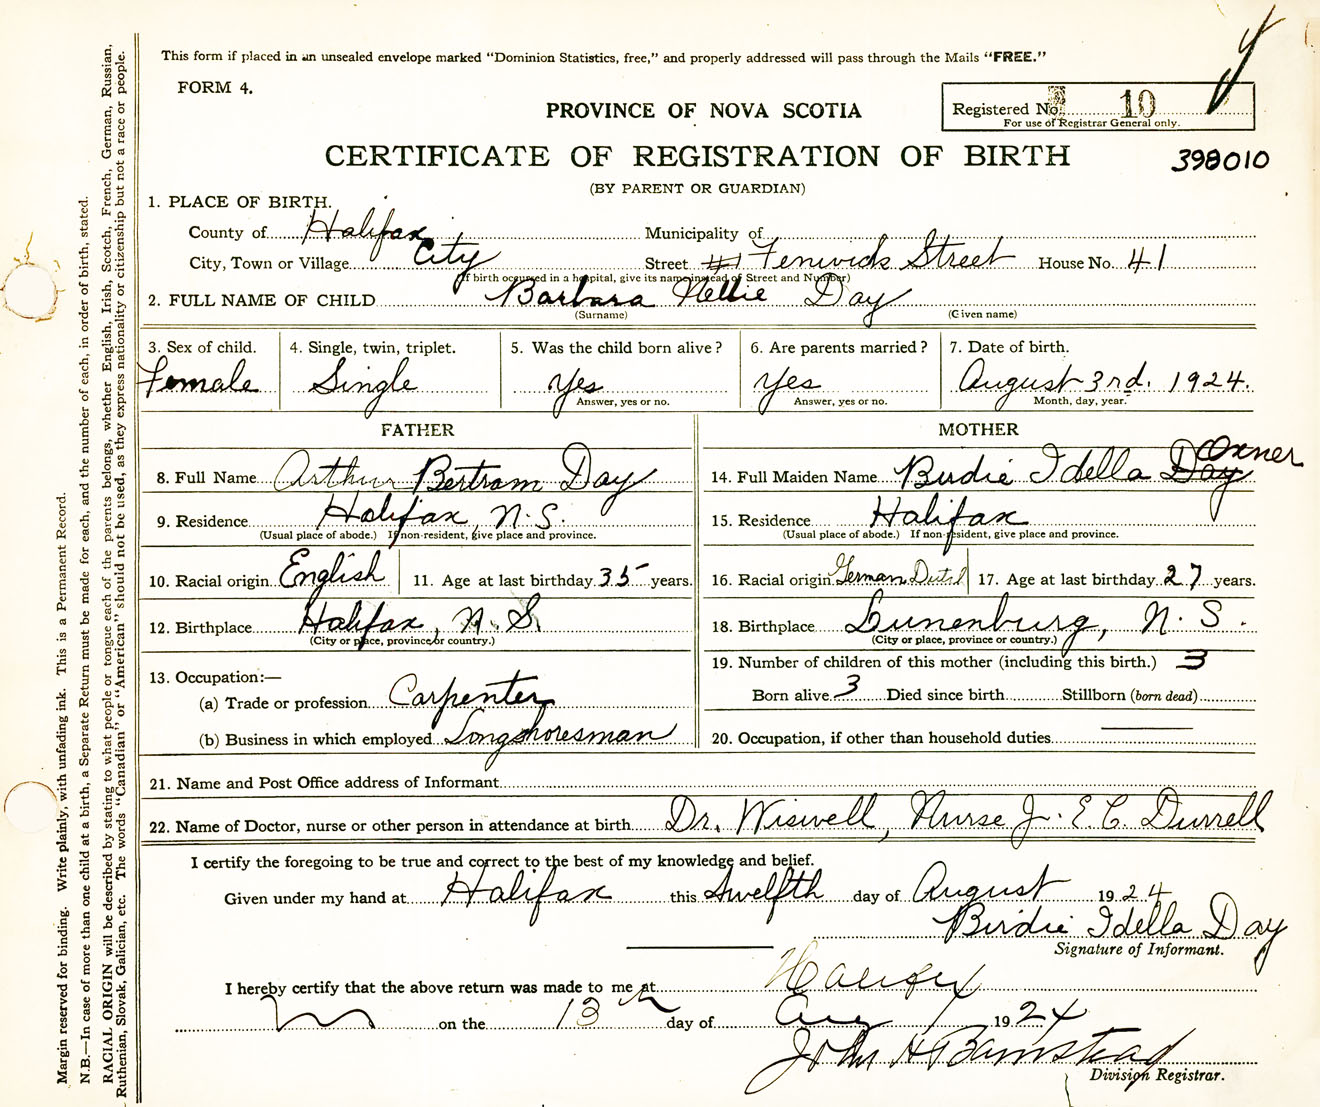 This form if placed in an unsealed envelope marked "Dominion Statistics, free," and properly addressed will pass through the Mails "FREE."
FORM 4.
PROVINCE OF NOVA SCOTIA
Registered No. 10
For use of Registrar General only.
CERTIFICATE OF REGISTRATION OF BIRTH
398010
(BY PARENT OR GUARDIAN)
1. PLACE OF BIRTH.
County of Halifax Municipality of
City, Town or Village City Street Fenwick Street House No. 41
(If birth occurred in a hospital, give its name instead of Street and Number)
2. FULL NAME OF CHILD Barbara Nellie Day
(Surname) (Given name)
3. Sex of child. 4. Single, twin, triplet. 5. Was the child born alive? 6. Are parents married? 7. Date of birth.
Female Single Yes Yes August 3rd. 1924.
Answer, yes or no. Answer, yes or no. Month, day, year.
FATHER MOTHER
Oxner
8. Full Name Arthur Bertram Day 14. Full Maiden Name Birdie Idella Day
9. Residence Halifax, N.S. 15. Residence Halifax
(Usual place of abode.) If non-resident, give place and province. (Usual place of abode.) If non-resident, give place and province.
10. Racial origin English 11. Age at last birthday 35 years. 16. Racial origin German 17. Age at last birthday 27 years.
12. Birthplace Halifax, N.S. 18. Birthplace Lunenburg, N.S.
(City or place, province or country.) (City or place, province or country.)
19. Number of children of this mother (including this birth.) 3
13. Occupation:—
(a) Trade or profession Carpenter Born alive 3 Died since birth Stillborn (born dead)
(b) Business in which employed Longshoresman 20. Occupation, if other than household duties
21. Name and Post Office address of Informant
22. Name of Doctor, nurse or other person in attendance at birth Dr. Wiswell, Nurse J. E. C. Durrell
I certify the foregoing to be true and correct to the best of my knowledge and belief.
Given under my hand at Halifax this twelfth day of August 1924
Birdie Idella Day
Signature of Informant.
I hereby certify that the above return was made to me at Halifax
on the 13th day of Aug 1924
John H Barnstead
Division Registrar.
Margin reserved for binding. Write plainly, with unfading ink. This is a Permanent Record.
N.B.—In case of more than one child at a birth, a Separate Return must be made for each, and the number of each, in order of birth, stated.
RACIAL ORIGIN will be described by stating to what people or tongue each of the parents belongs, whether English, Irish, Scotch, French, German, Russian,
Ruthenian, Slovak, Galician, etc. The words "Canadian" or "American" should not be used, as they express nationality or citizenship but not a race or people.